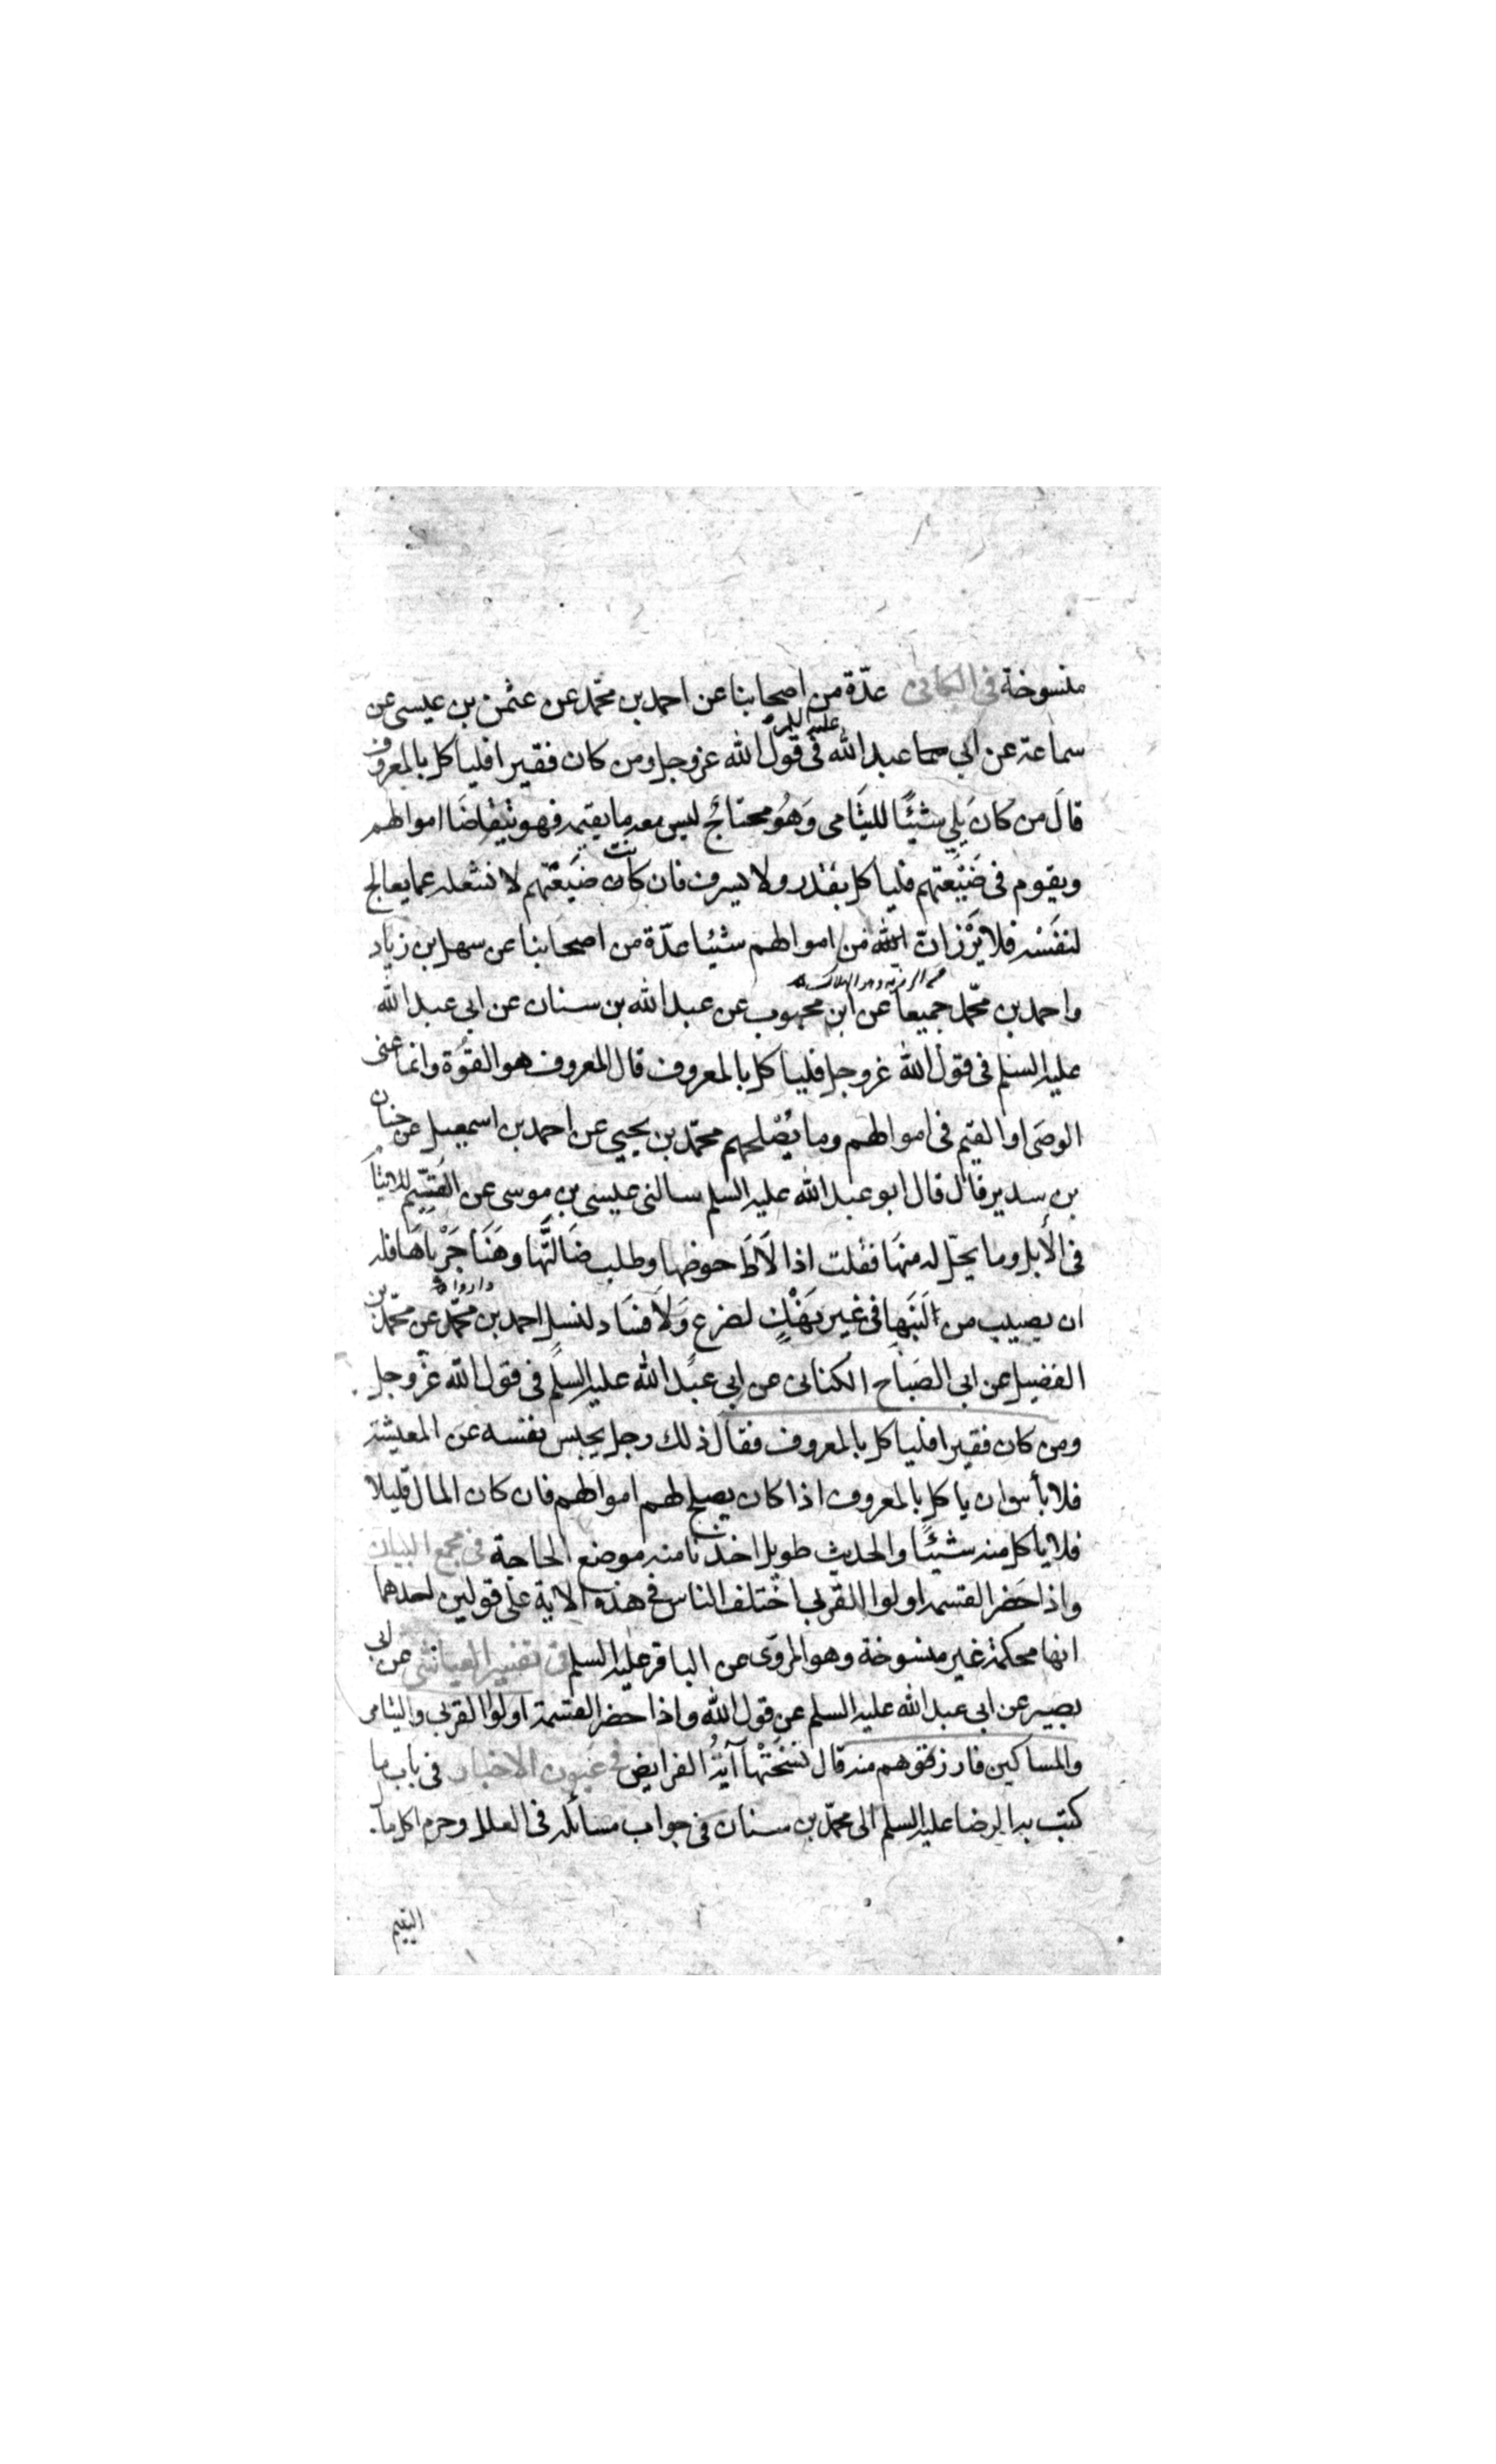 منسوخة في الكافى عدّة من اصحابنا عن احمد بن محمّد عن عثمن بن عيسى عن
سماعة عن ابي عبد الله عليه السلم في قول الله عز وجل ومن كان فقيرا فلياكل بالمعروف
قال من كان يلي شيئًا لليتامى وَهُو محتاجٌ ليس معه ما يقيمه فهو يتقاضَا اموالهم
ويقوم في ضَيْعَتهم فلياكل بقدر ولا يسرف فان كانت ضَيْعَتهم لا تشغله عما يعالج
لنفسه فلا يَرْزات من اموالهم شيئا عدّة من اصحابنا عن سهل بن زياد
واحمد بن محمّد جميعا عن ابن محبوب عن عبد الله بن سنان عن ابي عبد الله
عليه السلم في قول الله عز وجل فلياكل بالمعروف قال المعروف هو القوة وانما عنى
الوصى او القيم في اموالهم وما يُصْلحهم محمّد بن يحيي عن احمد بن اسمعيل عن حنان
بن سدير قال قال ابو عبد الله عليه السلم سالنى عيسى بن موسى عن القَيّم للايتام
في الأبل وما يحلّ له منها فقلت اذا لَاطَ حوضها وطلب ضَالتَّها وهَنَا جَرْباهَا فله
ان يصيب من لَبَنِها في غير نَهْكٍ لضرع وَلا فسَاد لنسل احمد بن محمّد عن محمّد بن
الفضيل عن ابي الصَباح الكنانى عن ابي عبد الله عليه السلم في قول الله عزّ وجل
ومن كان فقيرا فلياكل بالمعروف فقال ذلك رجل يحبس نفسه عن المعيشة
فلا بأس ان ياكل بالمعروف اذا كان يصلح لهم اموالهم فان كان المال قليلا
فلا ياكل منه شيئًا والحديث طويل اخذنا منه موضع الحاجة في مجمع البيان
واذا حَضر القسمة اولوا القربى اختلف الناس في هذه الاية على قولين احدهما
انها محكمة غير منسوخة وهو المروّى عن الباقر عليه السلم في تفسير العياشى عن ابي
بصير عن ابي عبد الله عليه السلم عن قول الله واذا حضر القسمة اولوا القربى واليتامى
والمساكين فارزقوهم منه قال نسَخَتْها آيَةُ الفرايض في عيون الاخبار في باب ما
كتب به الرضا عليه السلم الى محمّد بن سنان في جواب مسائله في العلل وحرم اكل مال
اليتيم